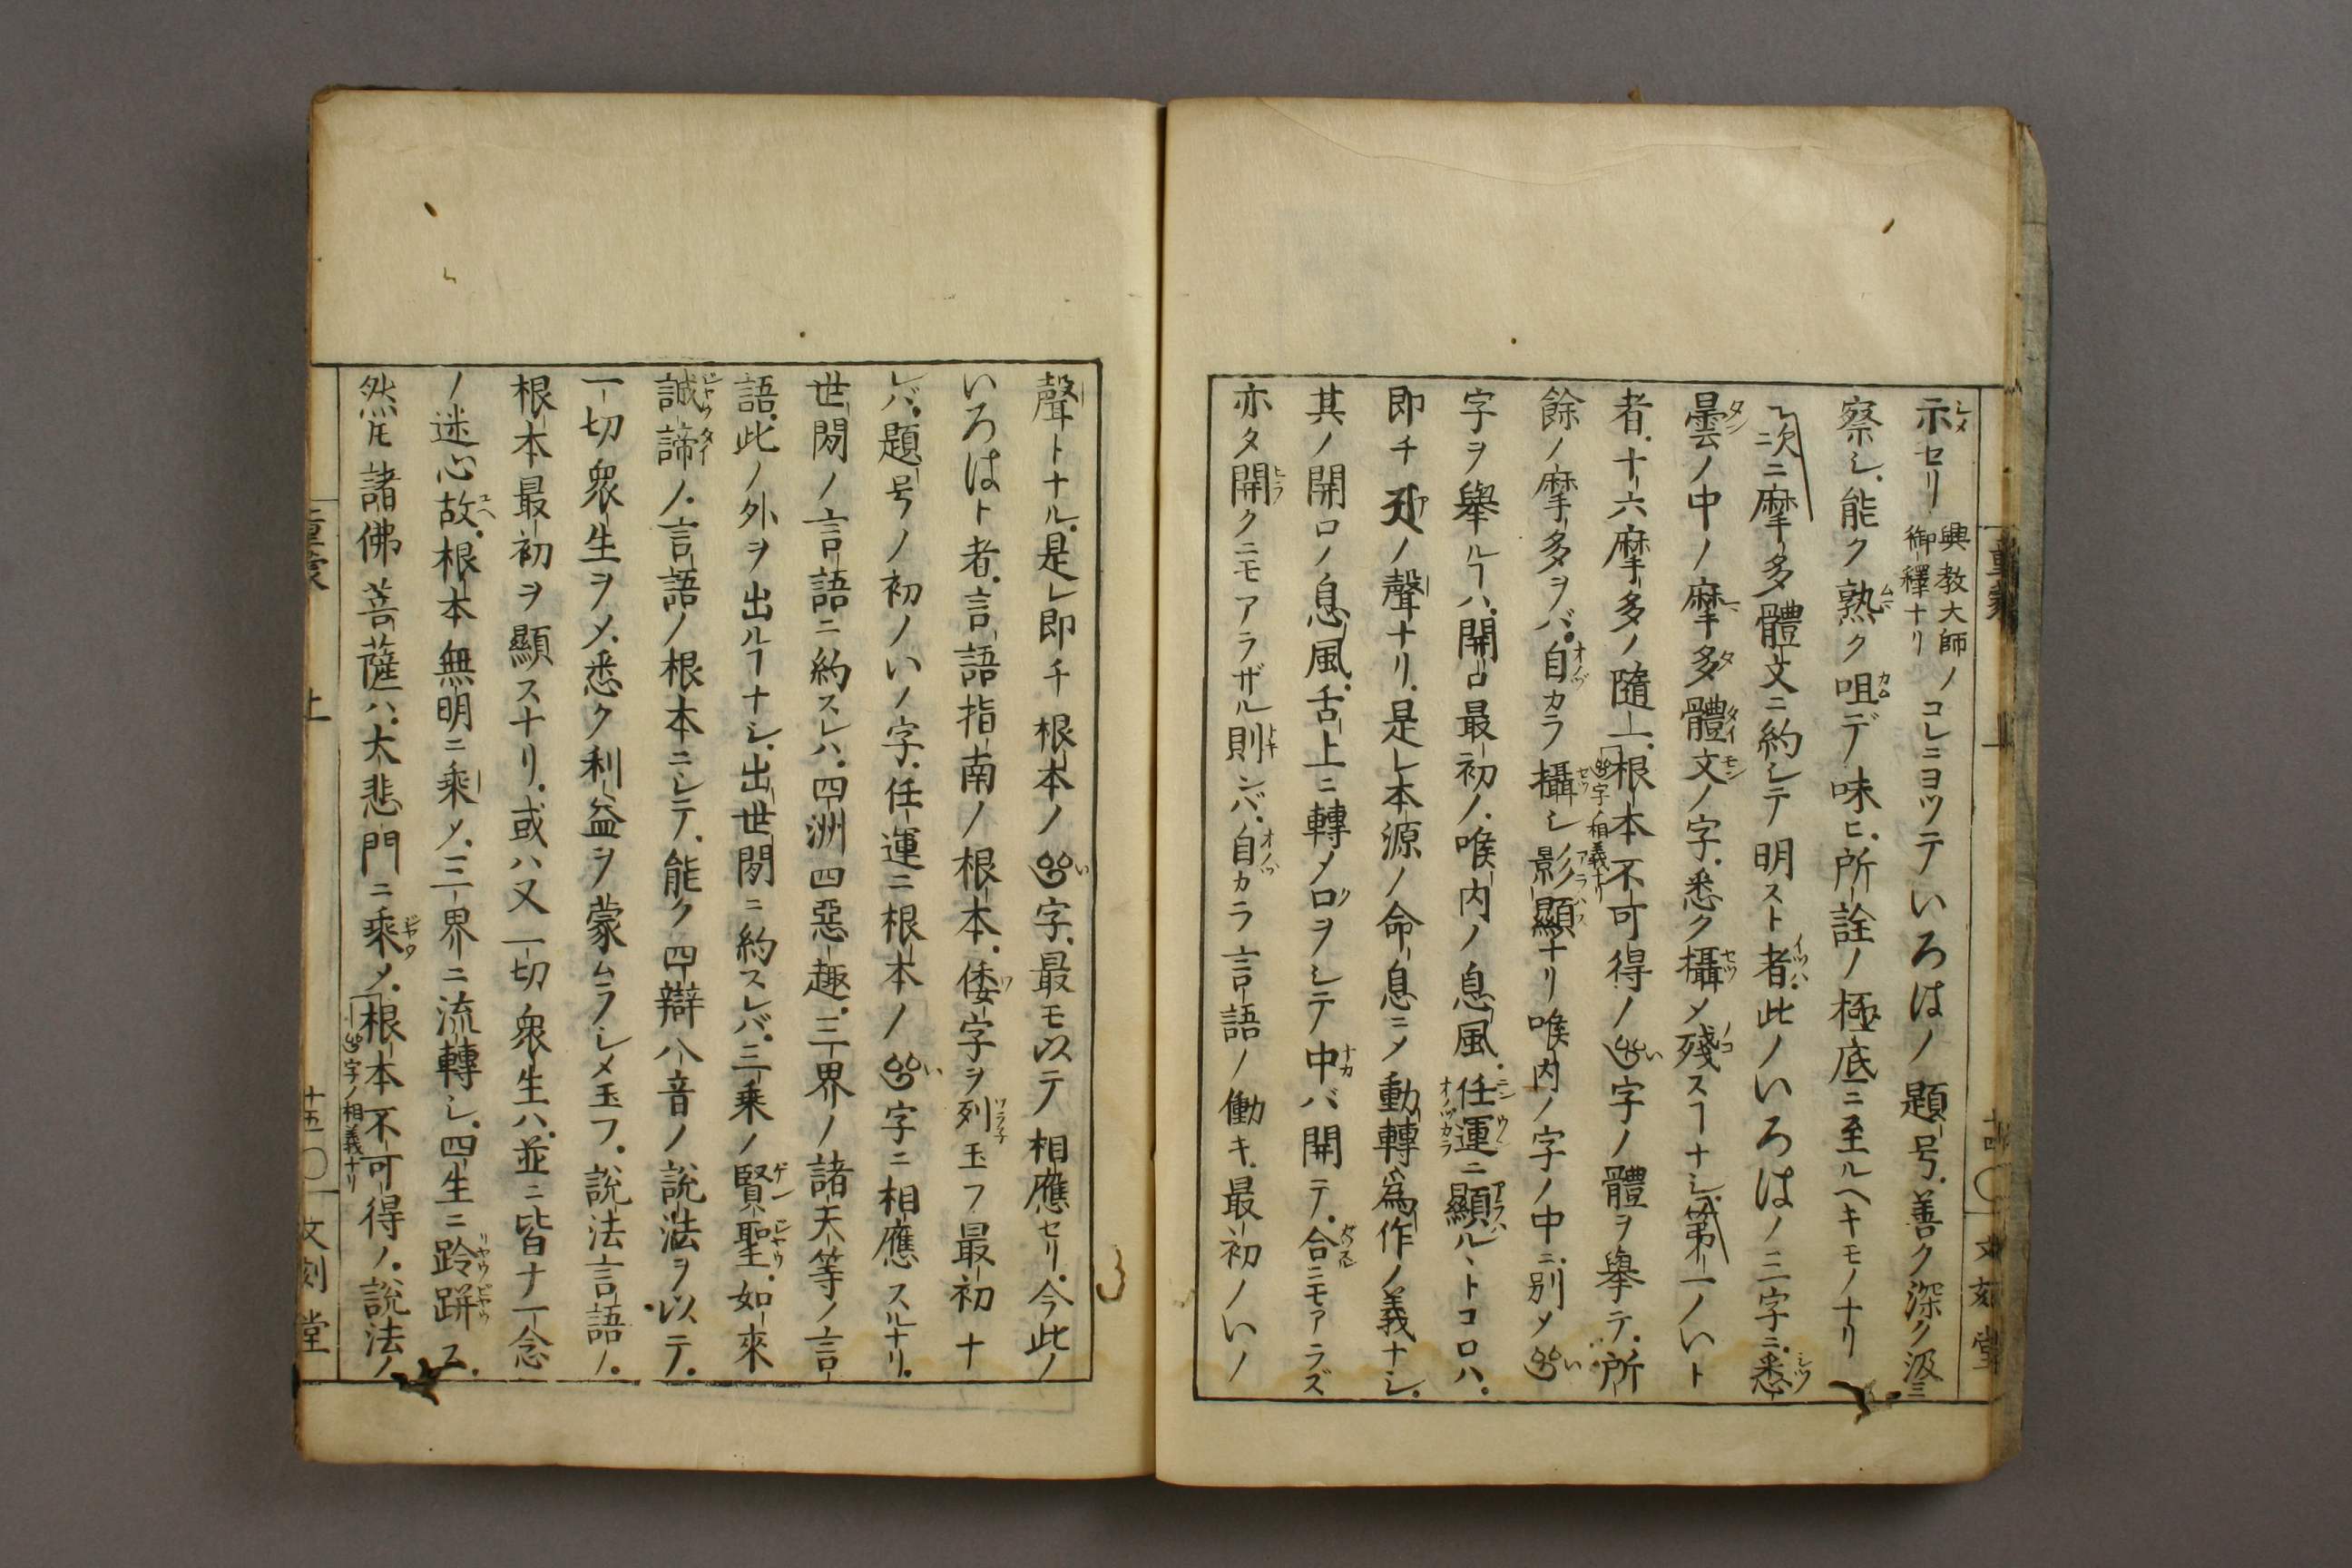 示セリ興教大師御釋ナリノコレニヨツテいろはノ題号善ク深ク汲ミ
察シ能ク熟ク咀デ味ヒ所詮ノ極底ニ至ルヘキモノナリ
次ニ摩多體文ニ約シテ明スト者此ノいろはノ三字ニ悉
曇ノ中ノ摩多體文ノ字悉ク攝メ殘スヿナシ第一ノいト
者十六摩多ノ隨一根本不可得ノ字ノ體ヲ擧テ所
餘ノ摩多ヲバ自カラ攝シ影顯ナリ喉内ノ字ノ中ニ別メ
字ヲ擧ルヿハ開口最初ノ喉内ノ息風任運ニ顯ルヽトコロハ
即チノ聲ナリ是レ本源ノ命息ニメ動轉為作ノ義ナシ
其ノ開口ノ息風舌上ニ轉メ口ヲシテ中バ開テ合ニモアラズ
亦タ開クニモアラザル則ンバ自カラ言語ノ働キ最初ノいノ
聲トナル是レ即チ根本ノ字最モ以テ相應セリ今此ノ
いろはト者言語指南ノ根本倭字ヲ列玉フ最初ナ
レバ題号ノ初ノいノ字任運ニ根本ノ字ニ相應スルナリ
世間ノ言語ニ約スレハ四洲四惡趣三界ノ諸天等ノ言
語此ノ外ヲ出ルヿナシ出世間ニ約スレバ三乘ノ賢聖如來
誠諦ノ言語ノ根本ニシテ能ク四辯八音ノ說法ヲ以テ
一切衆生ヲメ悉ク利益ヲ蒙ムラシメ玉フ說法言語ノ
根本最初ヲ顯スナリ或ハ又一切衆生ハ並ニ皆ナ一念
ノ迷心故根本無明ニ乘メ三界ニ流轉シ四生ニ跉跰ス
然ルニ諸佛菩薩ハ大悲門ニ乘メ根本不可得ノ說法ノ
上
十五
文刻堂